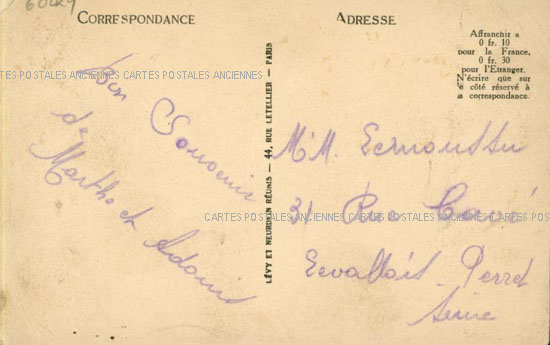 CORRESPONDANCE
ADRESSE
Affranchir a
0 fr. 10
pour la France,
0 fr. 30
pour l'Etranger.
N'écrire que sur
le côté réservé à
la correspondance.
CARTES POSTALES ANCIENNES CARTES POSTALES ANCIENNES
Bon
Souvenir
de
Marthe et Adonis
LÉVY ET NEURDEIN RÉUNIS — 44, RUE LETELLIER — PARIS
31 Rue
CARTES POSTALES ANCIENNES CARTES POSTALES ANCIENNES CARTES POSTALES
Levallois-Perret
Seine